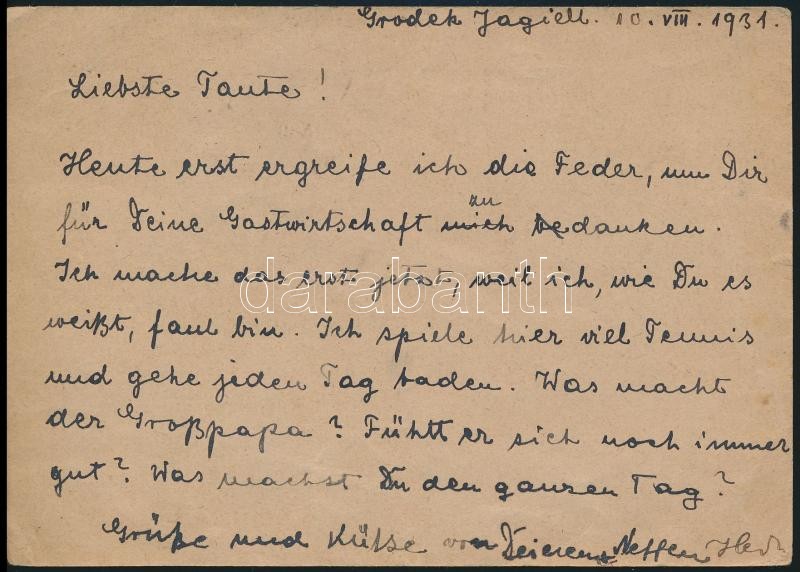 Grodek Jagiell. 10. VIII. 1931.
Liebste Tante!
Heute erst ergreife ich die Feder, um Dir
für Deine Gastwirtschaft zu danken.
Ich mache das erst jetzt, weil ich, wie Du es
weißt, faul bin. Ich spiele hier viel Tennis
und gehe jeden Tag baden. Was macht
der Großpapa? Fühlt er sich noch immer
gut? Was machst Du den ganzen Tag?
Grüße und Küße von Deienem Neffen
darabanth